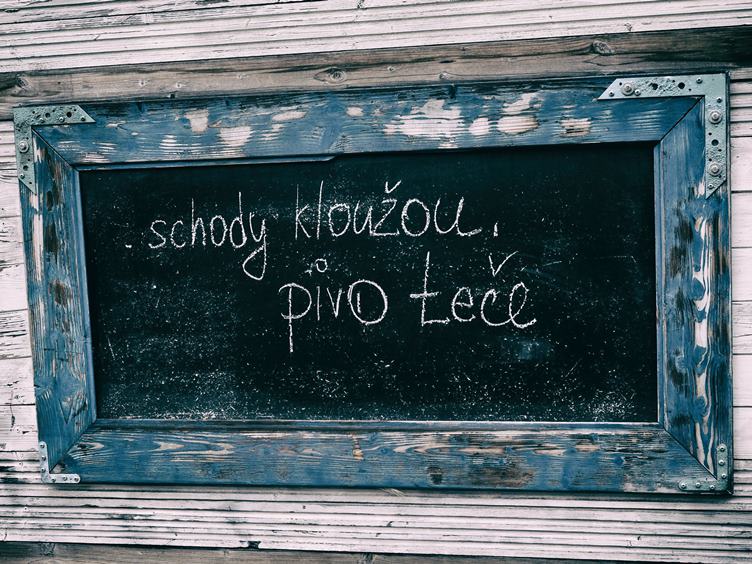 schody kloužou.
pivo teče